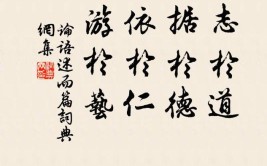 志於道
据於德
依於仁
游於藝
論語述而篇詞典
網集